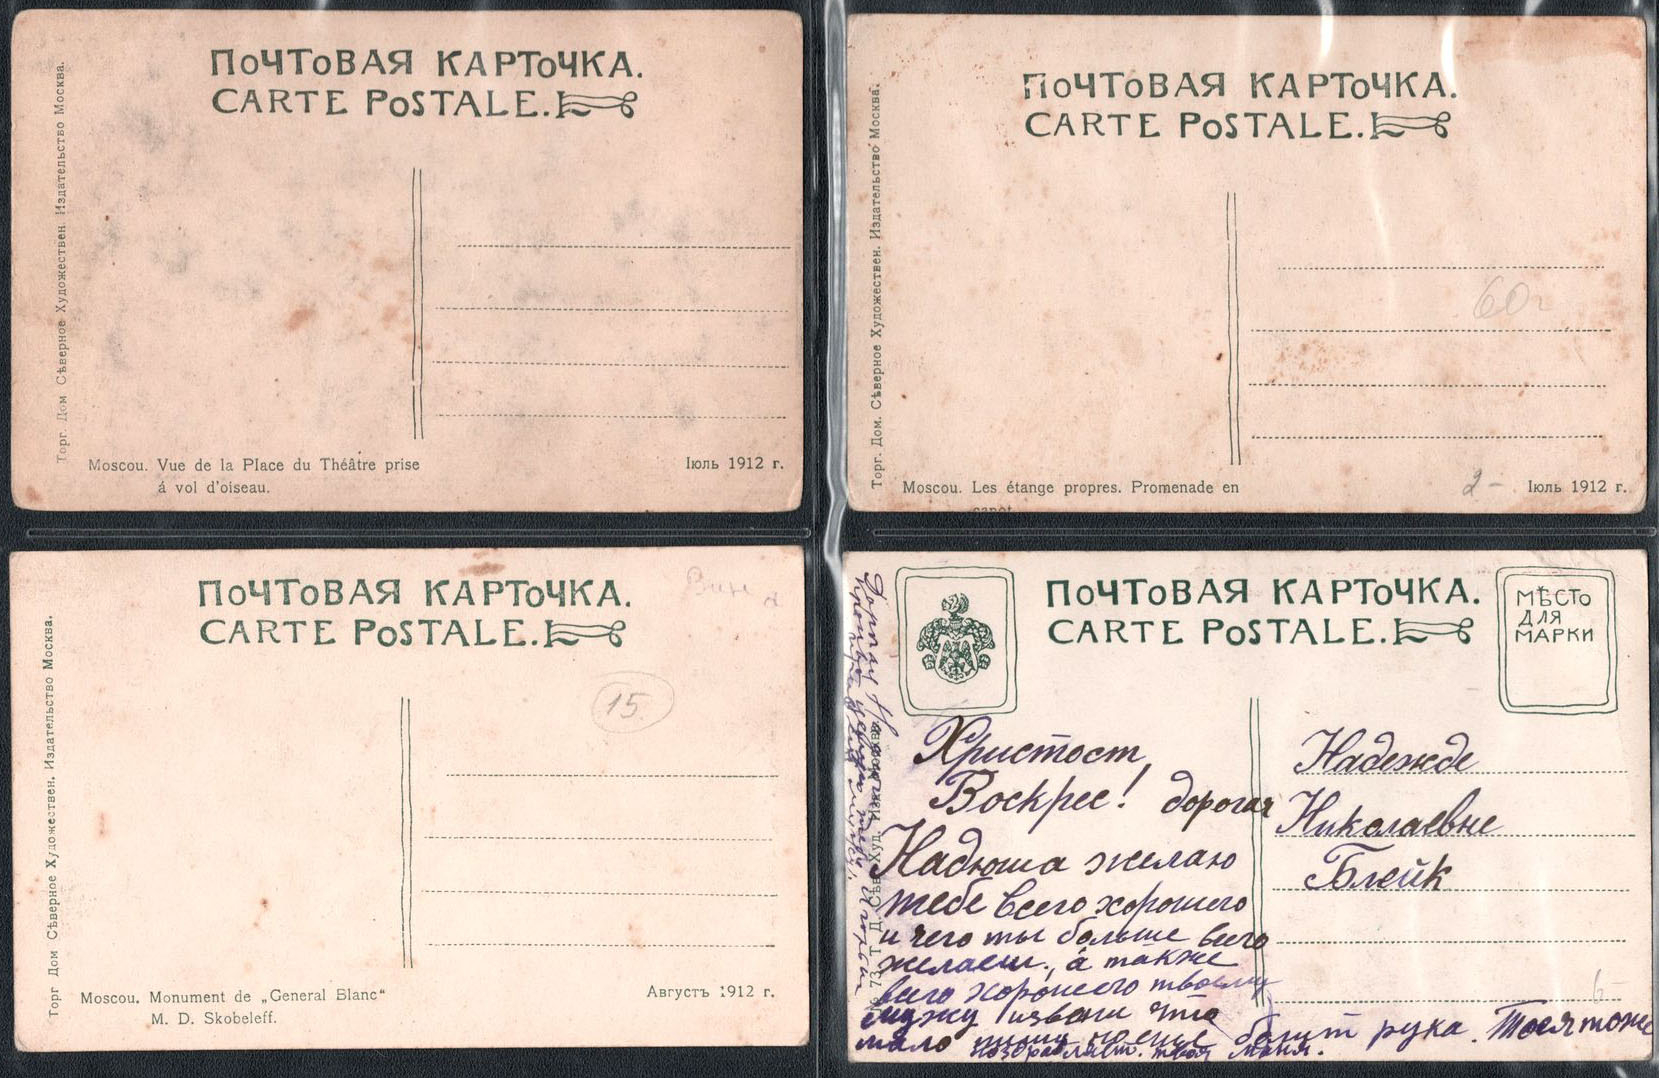 ПОЧТОВАЯ КАРТОЧКА.
CARTE POSTALE.
Торг. Дом Сѣверное Художествен. Издательство Москва.
Moscou. Vue de la Place du Théâtre prise
á vol d'oiseau.
Іюль 1912 г.
ПОЧТОВАЯ КАРТОЧКА.
CARTE POSTALE.
Торг. Дом. Сѣверное Художествен. Издательство Москва.
60
Moscou. Les étange propres. Promenade en
canot
2-
Іюль 1912 г.
ПОЧТОВАЯ КАРТОЧКА.
CARTE POSTALE.
15
Торг Дом Сѣверное Художествен. Издательство Москва.
Moscou. Monument de „General Blanc“
M. D. Skobeleff.
Августъ 1912 г.
ПОЧТОВАЯ КАРТОЧКА.
CARTE POSTALE.
МѢСТО
ДЛЯ
МАРКИ
Христост
Воскрес! дорогая
Надюша желаю
тебе всего хорошего
и чего ты больше всего
желаеш, а также
всего хорошего твоему
мужу извени что
мало пишу болит рука. Тося тоже
поздравляет. твоя Маня.
Надежде
Николаевне
Блейк
6-